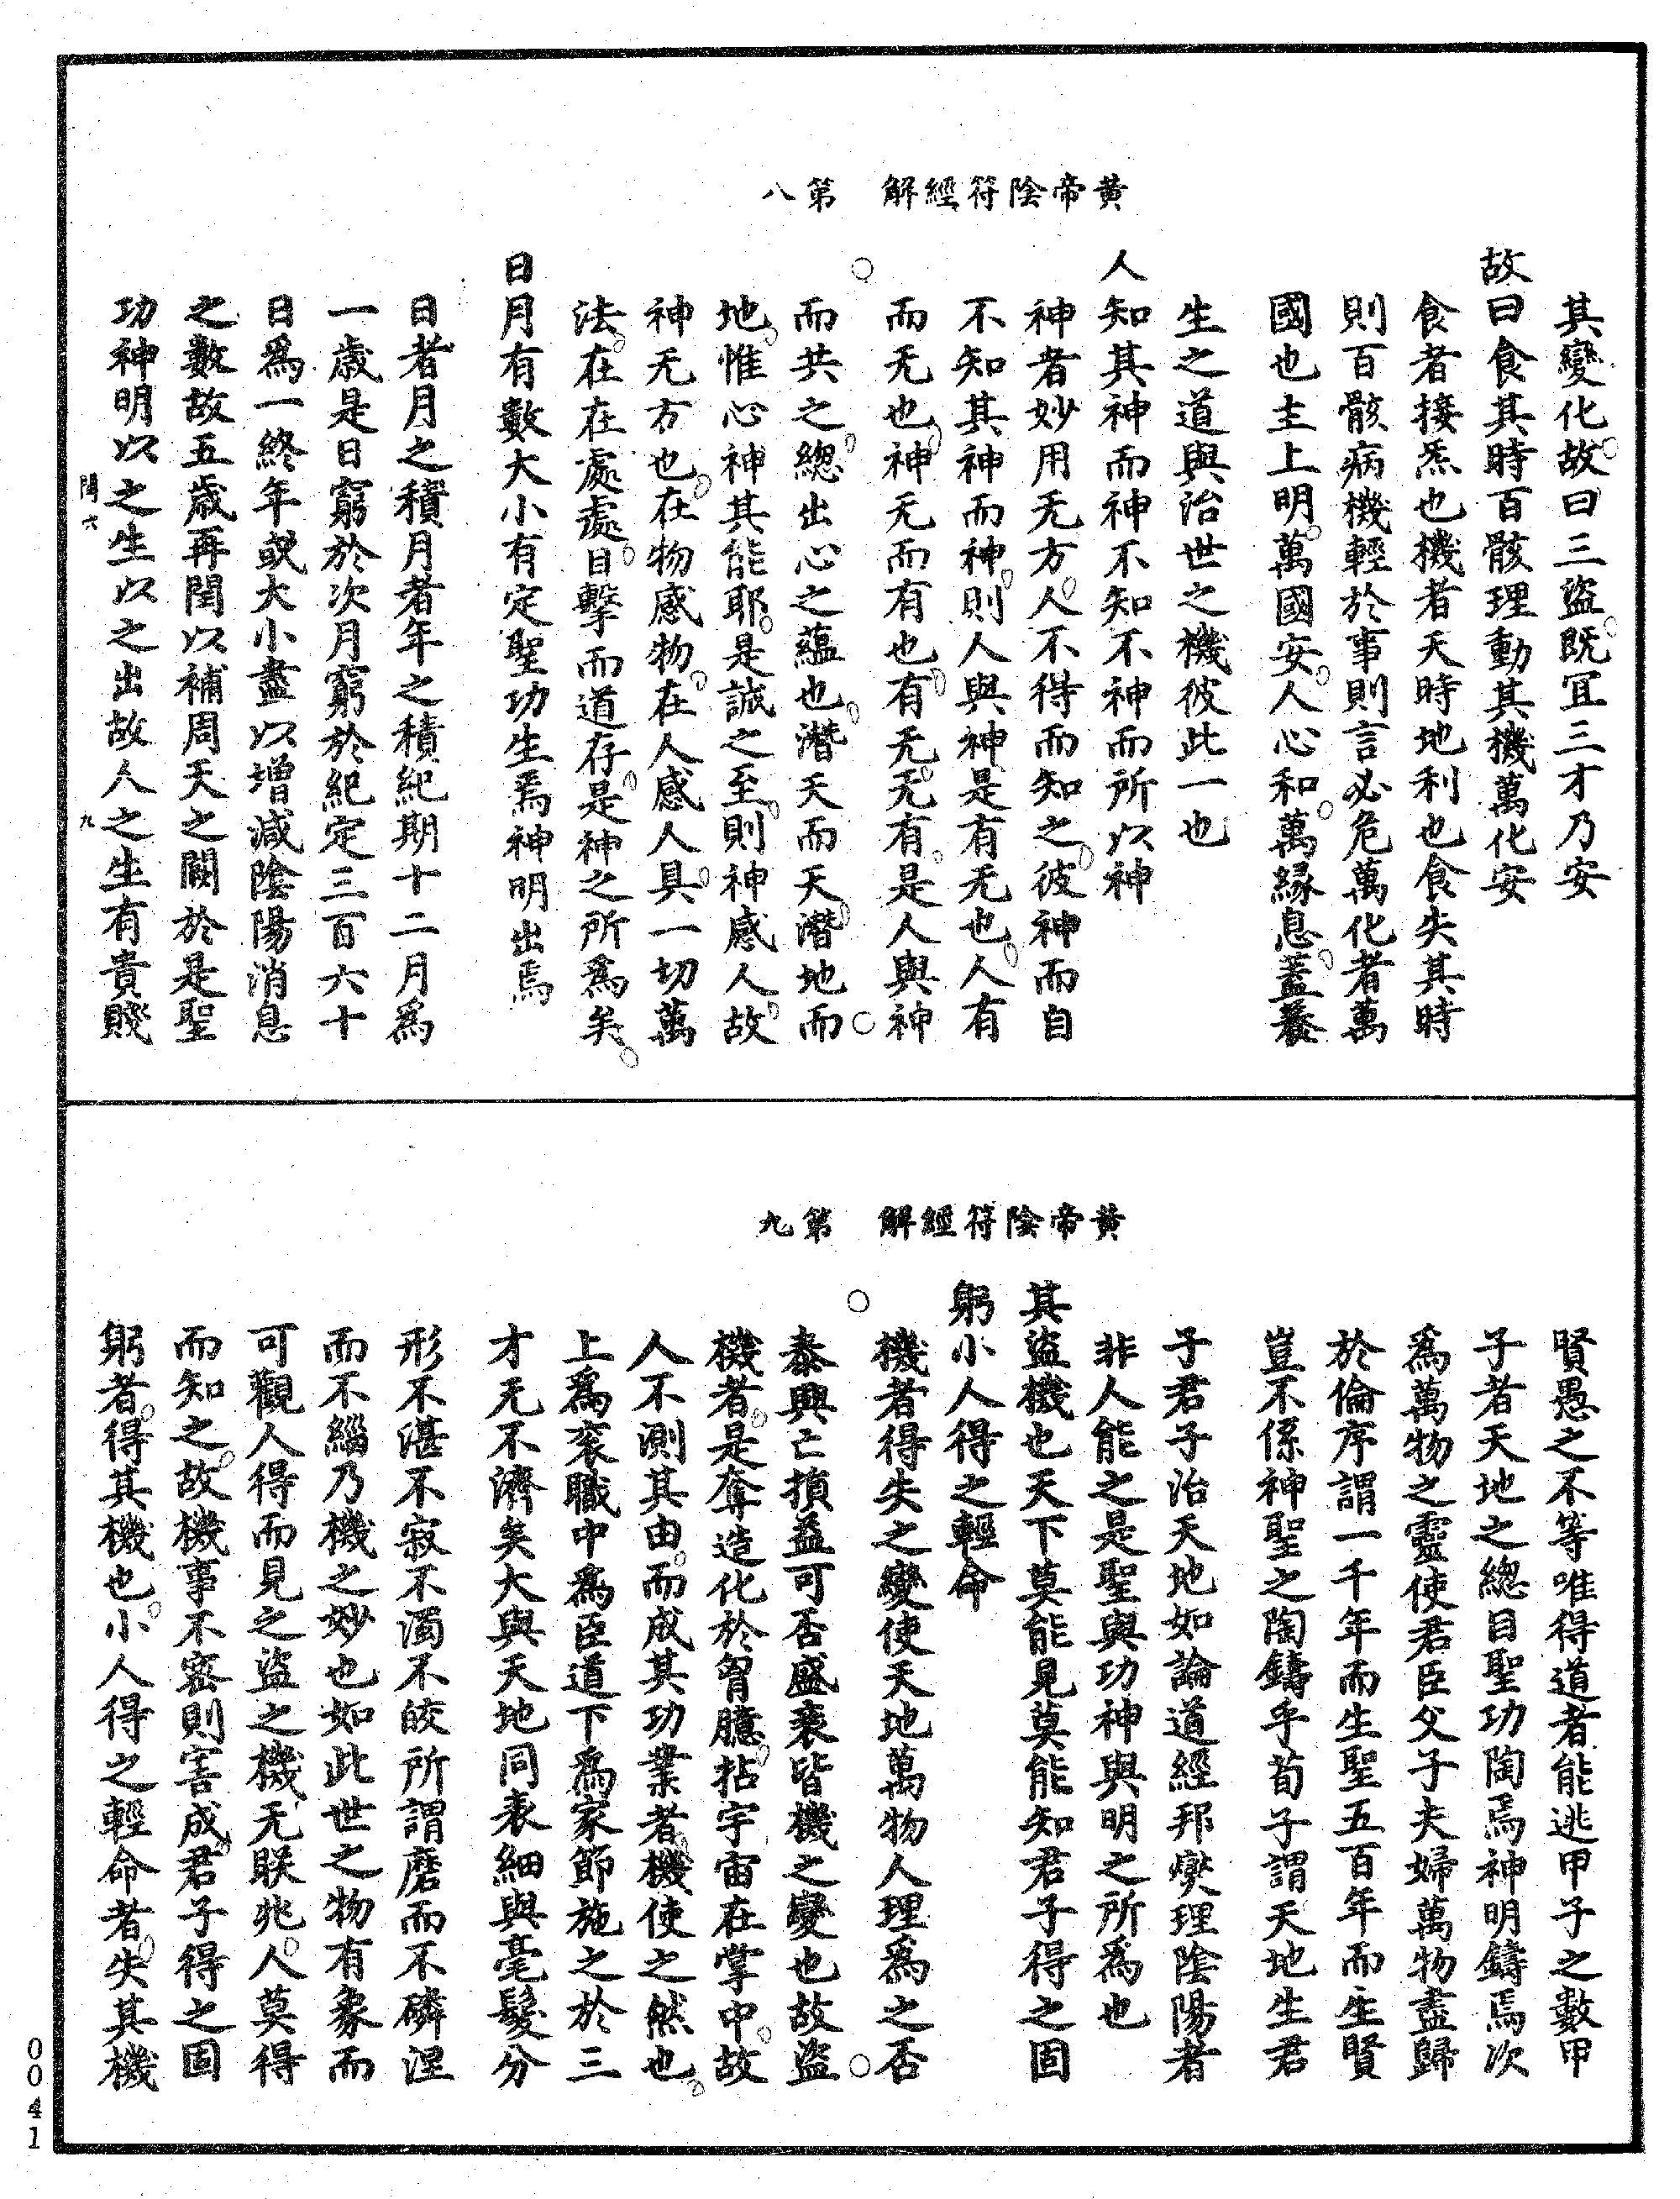 黃帝陰符經解　第八
其變化故曰三盜既宜三才乃安
故曰食其時百骸理動其機萬化安
食者接炁也機者天時地利也食失其時
則百骸病機輕於事則言必危萬化者萬
國也主上明萬國安人心和萬緣息蓋養
生之道與治世之機彼此一也
人知其神而神不知不神而所以神
神者妙用无方人不得而知之彼神而自
不知其神而神則人與神是有无也人有
而无也神无而有也有无无有是人與神
而共之總出心之蘊也潛天而天潛地而
地惟心神其能耶是誠之至則神感人故
神无方也在物感物在人感人具一切萬
法在在處處目擊而道存是神之所為矣
日月有數大小有定聖功生焉神明出焉
日者月之積月者年之積紀期十二月為
一歲是日窮於次月窮於紀定三百六十
日為一終年或大小盡以增減陰陽消息
之數故五歲再閏以補周天之闕於是聖
功神明以之生以之出故人之生有貴賤
閏六　九
黃帝陰符經解　第九
賢愚之不等唯得道者能逃甲子之數甲
子者天地之總目聖功陶焉神明鑄焉次
為萬物之靈使君臣父子夫婦萬物盡歸
於倫序謂一千年而生聖五百年而生賢
豈不係神聖之陶鑄乎荀子謂天地生君
子君子治天地如論道經邦燮理陰陽者
非人能之是聖與功神與明之所為也
其盜機也天下莫能見莫能知君子得之固
躬小人得之輕命
機者得失之變使天地萬物人理為之否
泰興亡損益可否盛衰皆機之變也故盜
機者是奪造化於胷臆拈宇宙在掌中故
人不測其由而成其功業者機使之然也
上為衮職中為臣道下為家節施之於三
才无不濟矣大與天地同表細與毫髮分
形不湛不寂不濁不皎所謂磨而不磷涅
而不緇乃機之妙也如此世之物有象而
可觀人得而見之盜之機无眹兆人莫得
而知之故機事不密則害成君子得之固
躬者得其機也小人得之輕命者失其機
0041